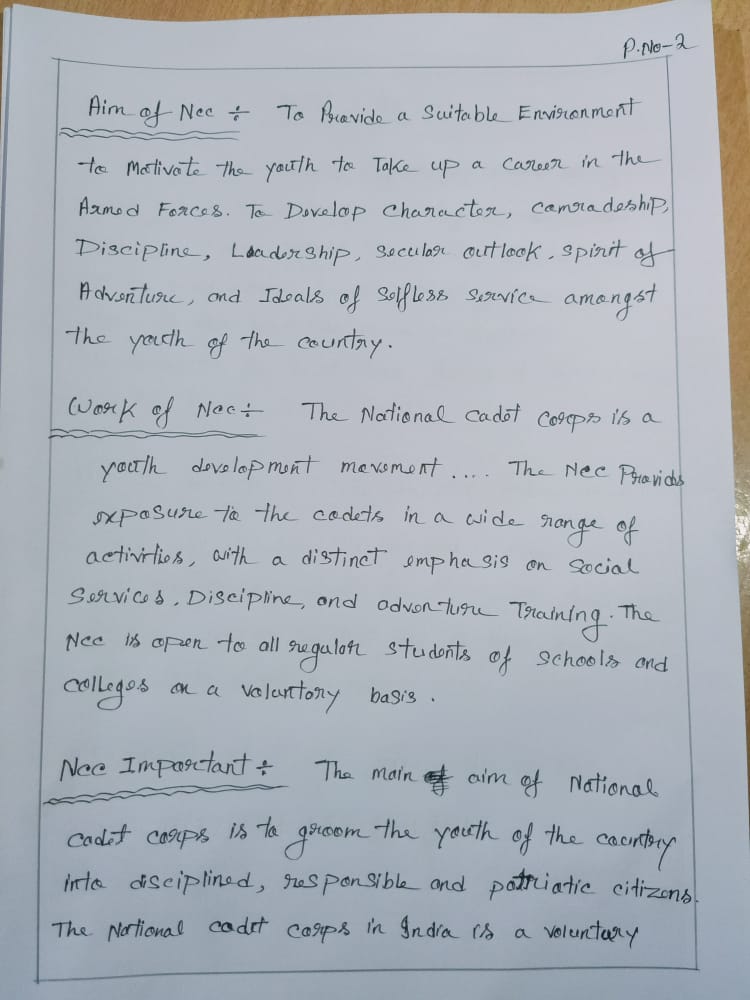 P.No-2
Aim of Ncc ÷ To Provide a Suitable Environment
to Motivate the youth to Take up a career in the
Armed Forces. To Develop Character, camradeship,
Discipline, Leadership, Secular outlook, spirit of
Adventure, and Ideals of Selfless Service amongst
the youth of the country.
Work of Ncc ÷ The National cadet corps is a
youth development movement .... The Ncc Provides
exposure to the cadets in a wide range of
activities, with a distinct emphasis on Social
Services, Discipline, and adventure Training. The
Ncc is open to all regular students of schools and
colleges on a voluntory basis.
Ncc Important ÷ The main aim of National
cadet corps is to groom the youth of the country
into disciplined, responsible and patriatic citizens.
The National cadet corps in India is a voluntary